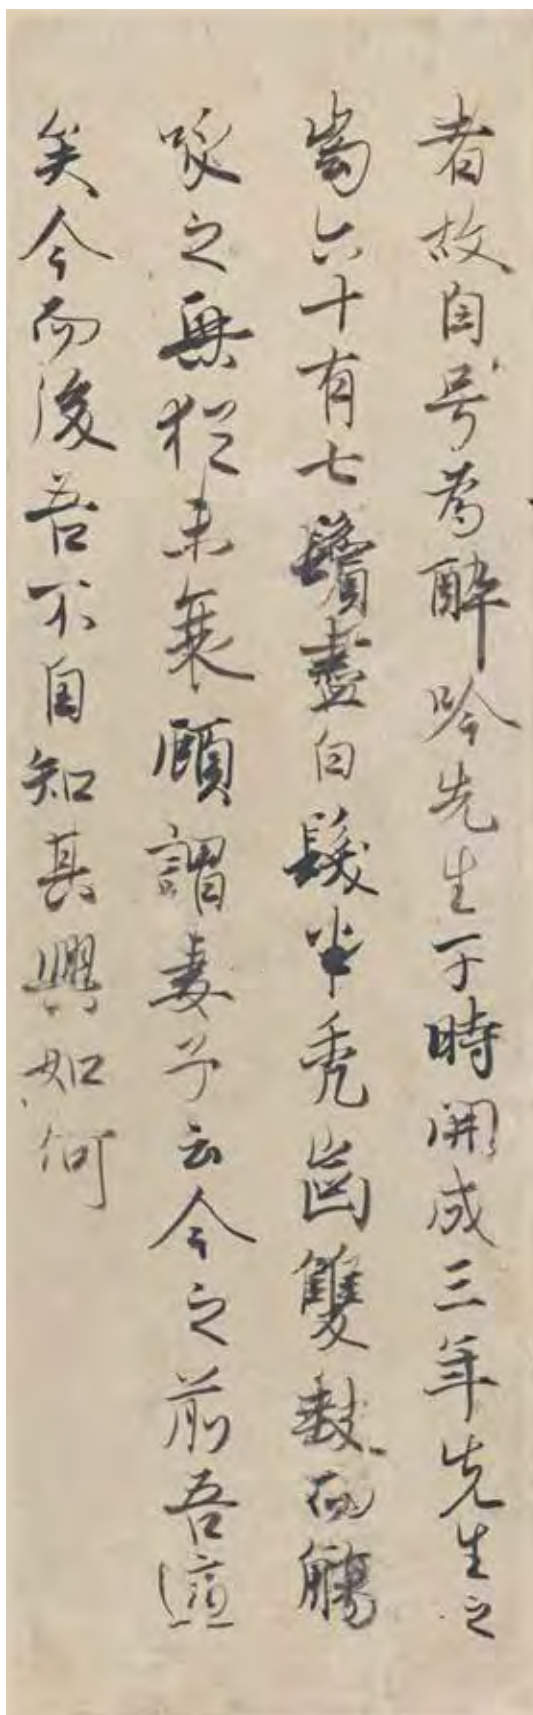 者故自号為醉吟先生于時開成三年先生之
齒六十有七鬢盡白髮半禿齒雙缺而觴
咏之興猶未衰顧謂妻子云今之前吾適
矣今而後吾不自知其興如何